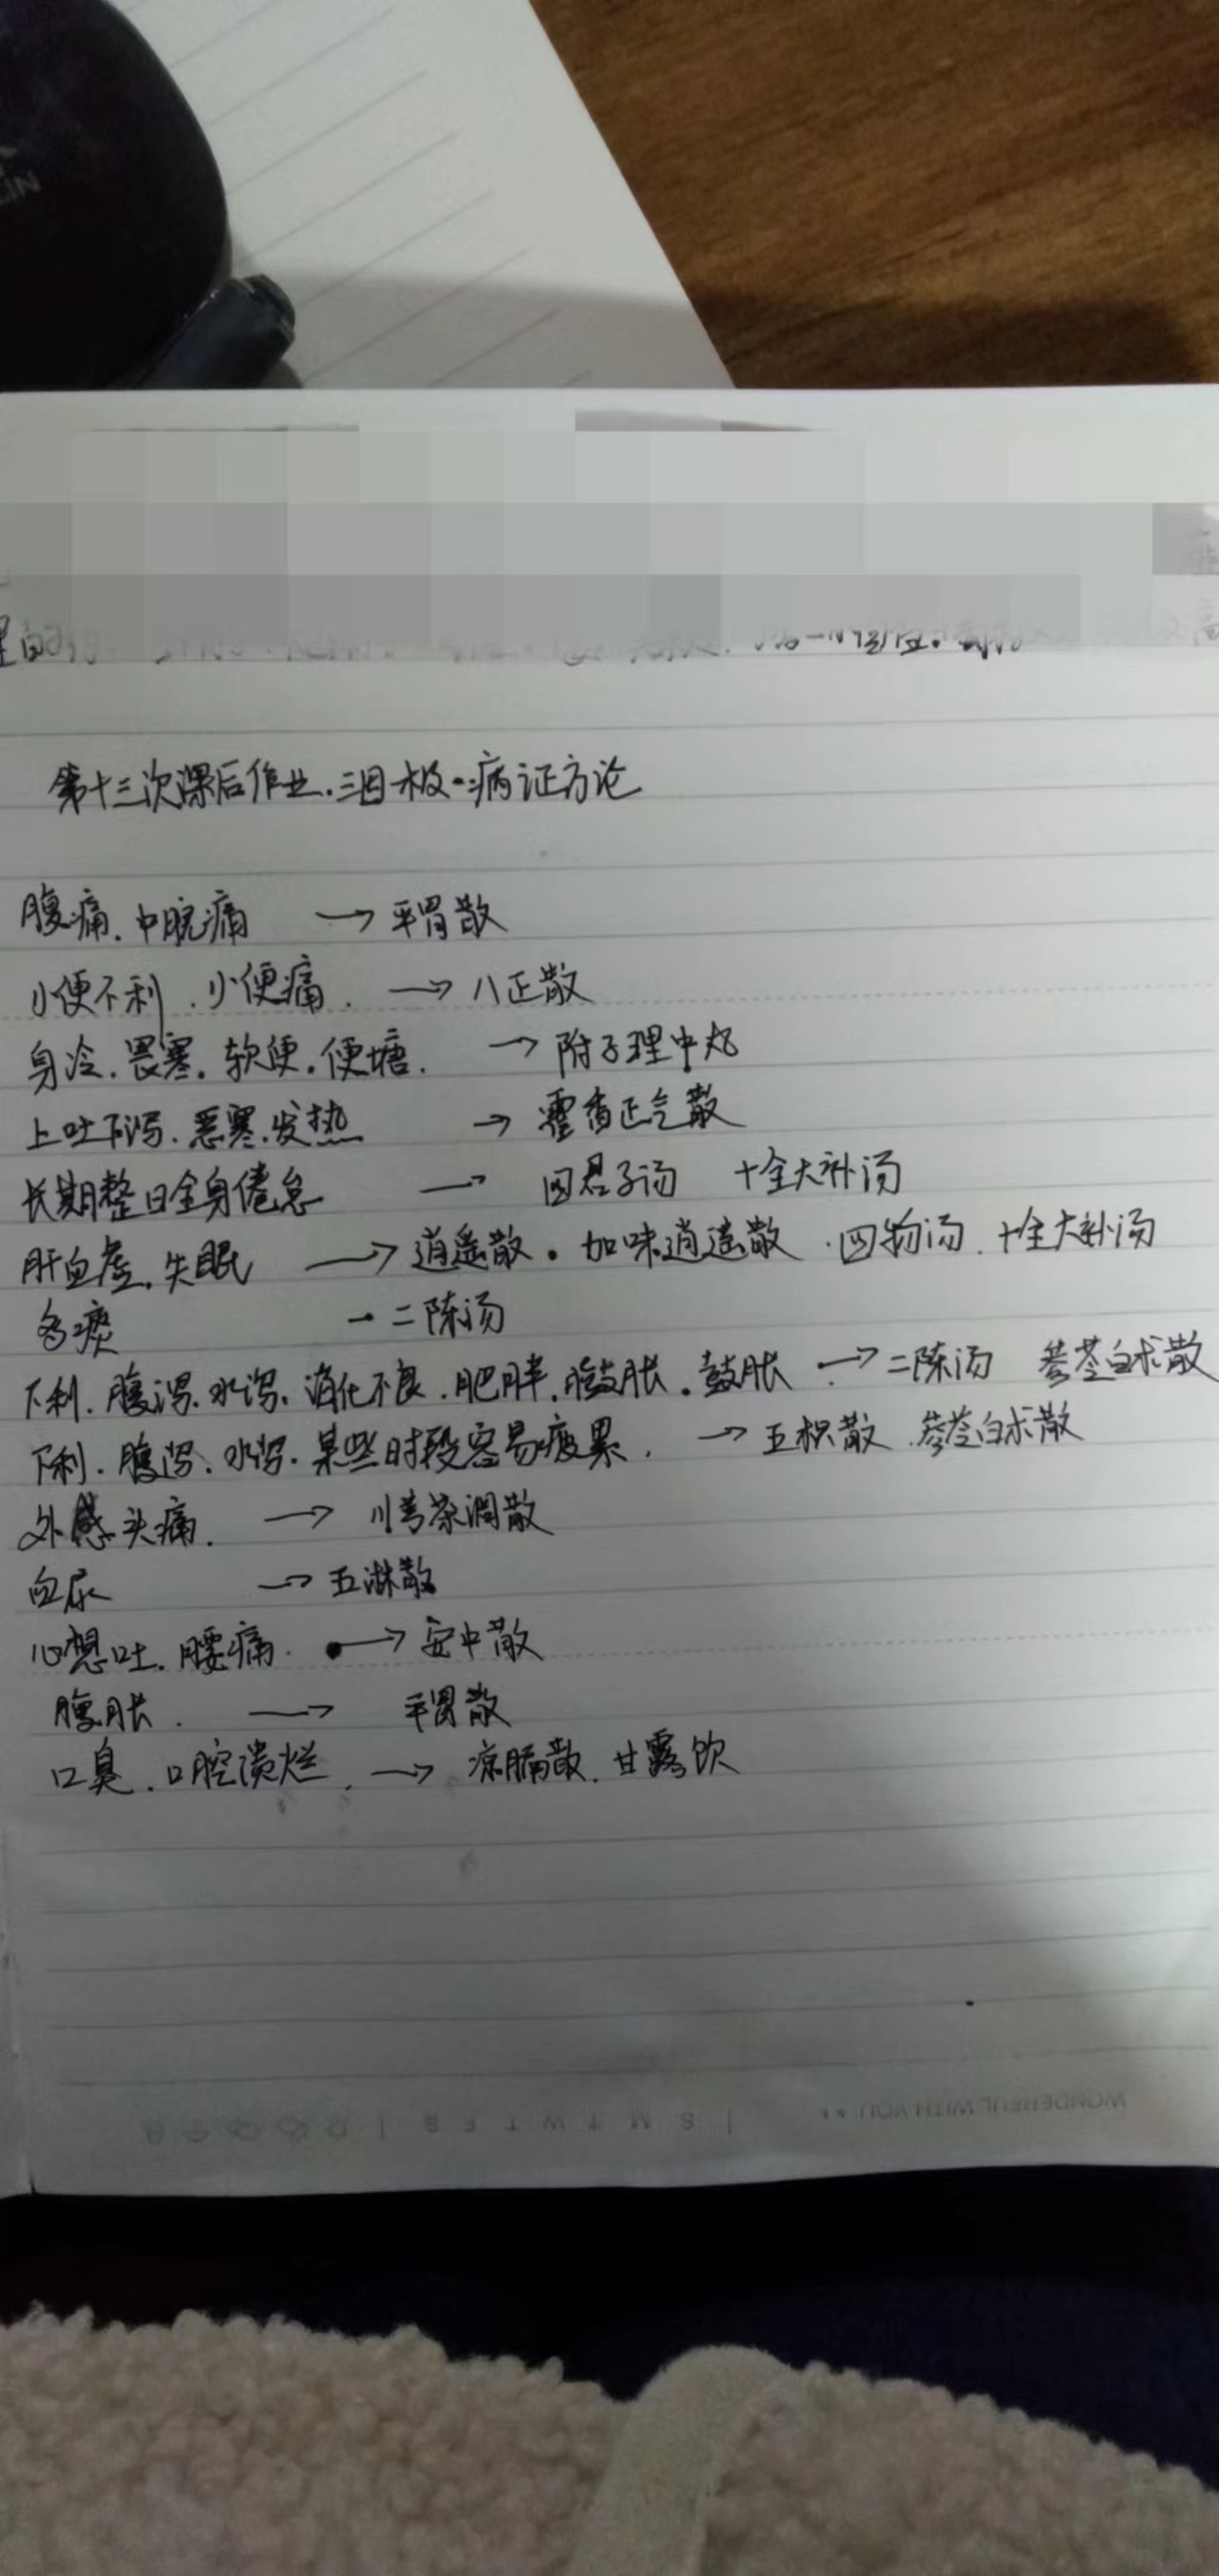 第十三次课后作业.三因极·病证方论
腹痛.中脘痛 → 平胃散
小便不利.小便痛. → 八正散
身冷.畏寒.软便.便塘. → 附子理中丸
上吐下泻.恶寒.发热 → 霍香正气散
长期整日全身倦怠 → 四君子汤 十全大补汤
肝血虚.失眠 → 逍遥散.加味逍遥散.四物汤.十全大补汤
多痰 - 二陈汤
下利.腹泻.水泻.消化不良.肥胖.膨胀.鼓胀 → 二陈汤 参苓白术散
下利.腹泻.水泻.某些时段容易疲累. → 五积散.参苓白术散
外感头痛. → 川芎茶调散
血尿 → 五淋散
心想吐.腰痛. → 安中散
腹胀. → 平胃散
口臭.口腔溃烂. → 凉膈散.甘露饮
WONDERFUL WITH YOU
S M T W T F S